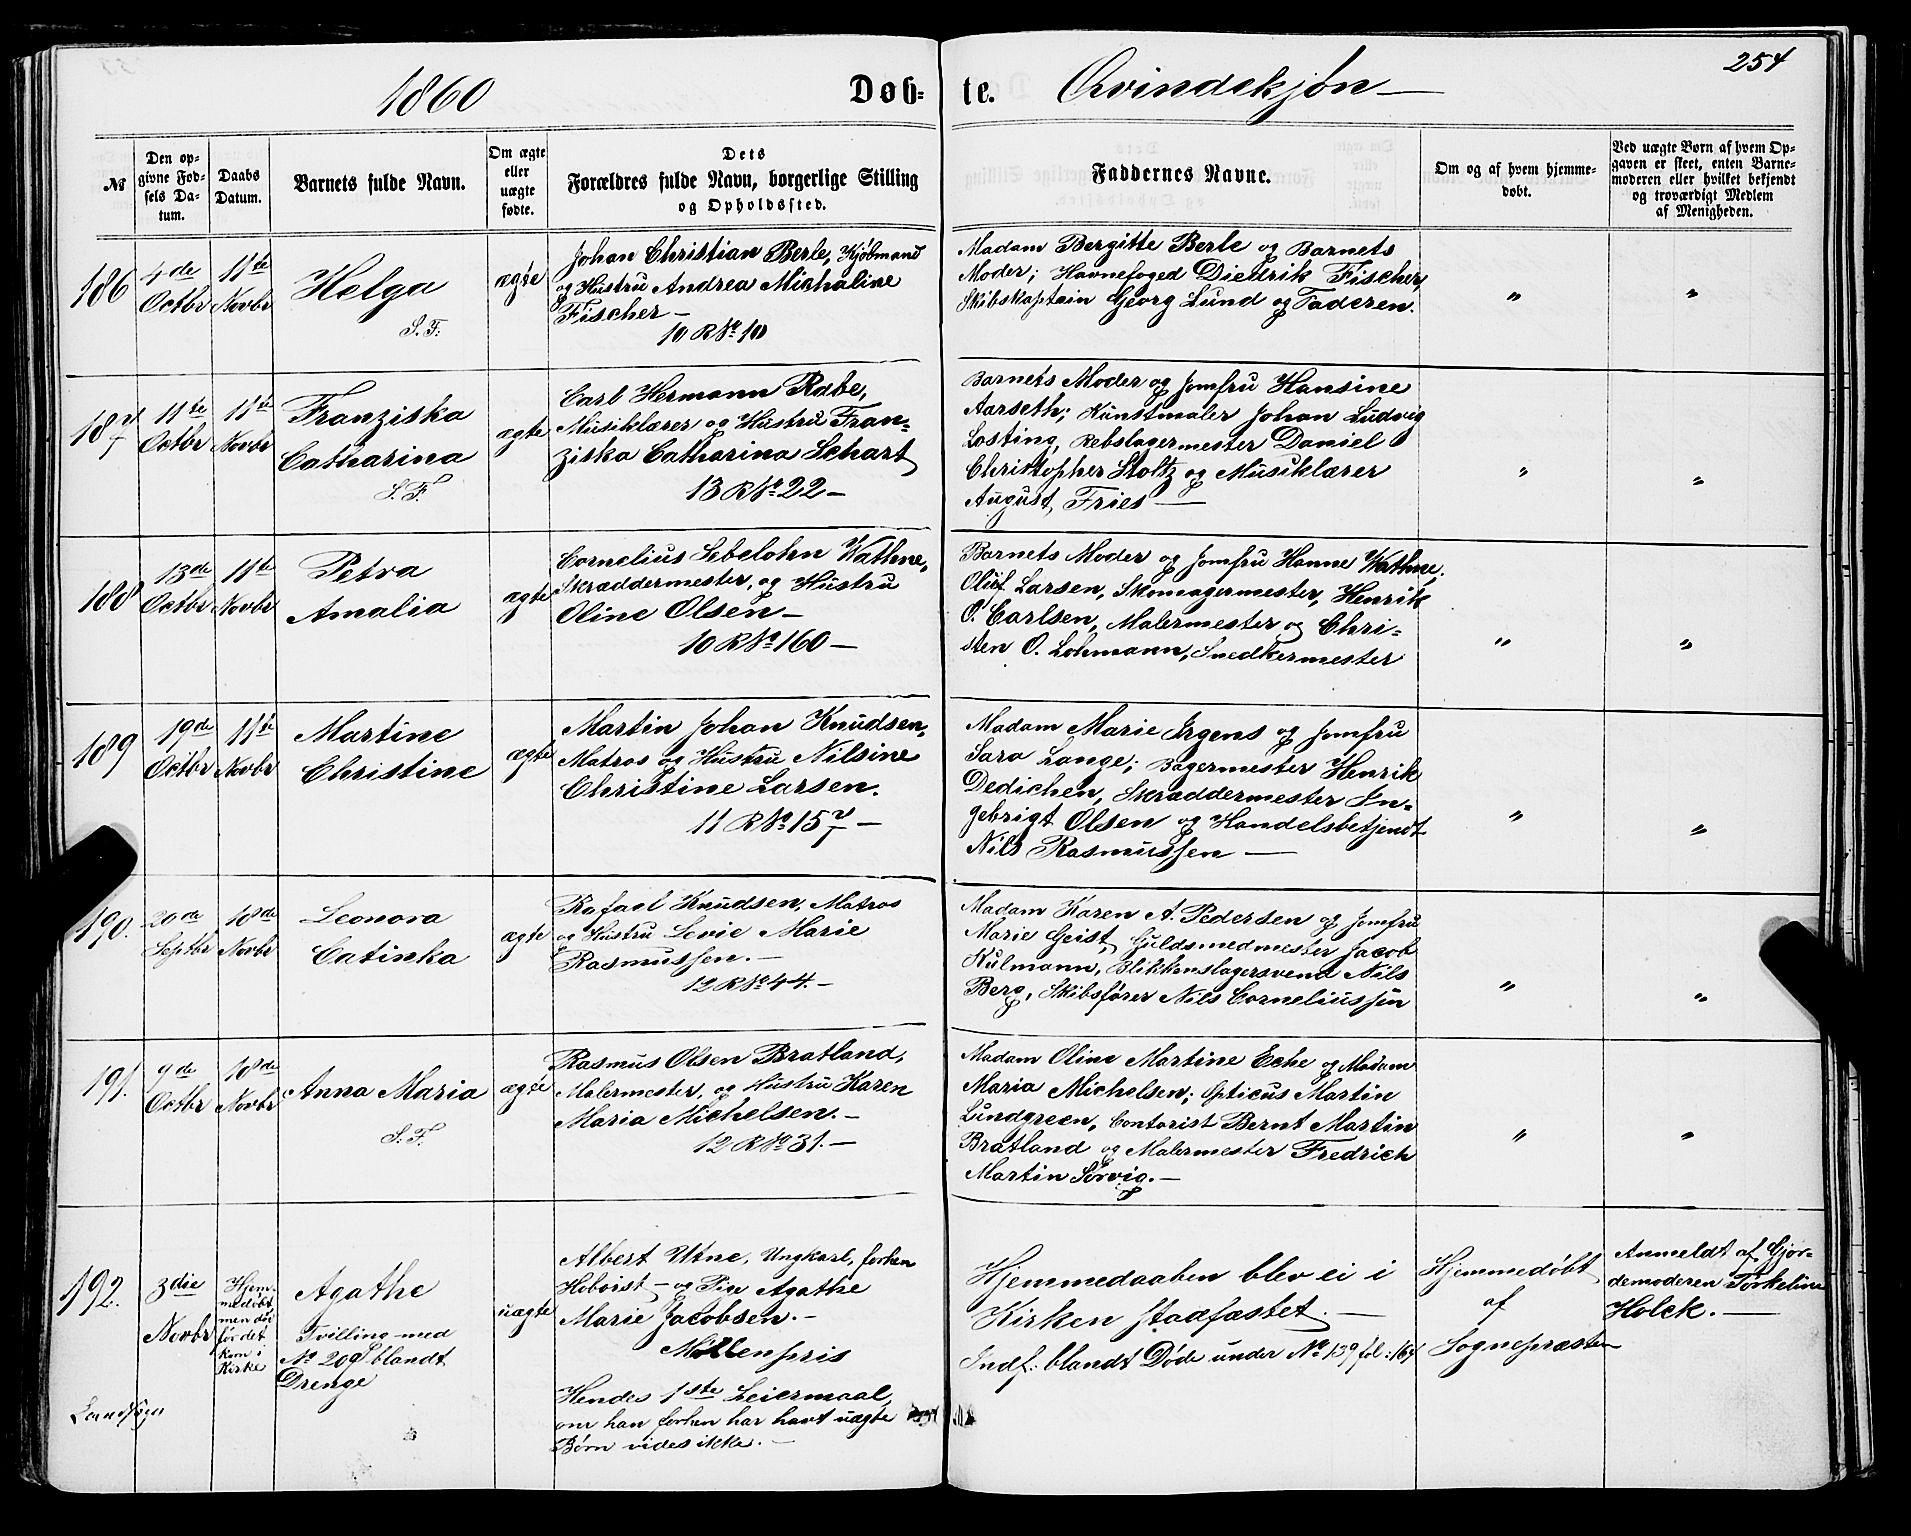 1860 Døb-te. Qvindekjøn— 254
№
Den op-
givne Fød-
sels Da-
tum.
Daabs
Datum.
Barnets fulde Navn.
Om ægte
eller
uægte
fødte.
Dets
Forældres fulde Navn, borgerlige Stilling
og Opholdssted.
Faddernes Navne.
Om og af hvem hjemme-
døbt.
Ved uægte Børn af hvem Op-
gaven er skeet, enten Barne-
moderen eller hvilket bekjendt
og troværdigt Medlem
af Menigheden.
186
4de
Octbr
11te
Novbr
Helga
S. F.
ægte
Johan Christian Berle, Kjøbmand
og Hustru Andrea Michaline
Fischer—
10 R № 10
Madam Bergitte Berle og Barnets
Moder; Havnefoged Diedrik Fischer,
Skibskaptain Georg Lund og Faderen.
"
"
187
11te
Octbr
11te
Novbr
Franziska
Catharina
S. F.
ægte
Carl Hermann Rabe,
Musiklærer og Hustru Fran-
ziska Catharina Schart
13 R № 22—
Barnets Moder og Jomfru Hansine
Aarseth; Kunstmaler Johan Ludvig
Losting, Rebslagermester Daniel
Christopher Stoltz og Musiklærer
August Fries—
"
"
188
13de
Octbr
11te
Novbr
Petra
Amalia
ægte
Cornelius Sebelohn Wathne,
Skræddermester, og Hustru
Oline Olsen—
10 R № 160—
Barnets Moder og Jomfru Hanne Wathne;
Oluf Larsen, Skomagermester, Henrik
O. Carlsen, Malermester og Chri-
sten O. Lohmann, Snedkermester
"
"
189
19de
Octbr
11te
Novbr
Martine
Christine
ægte
Martin Johan Knudsen,
Matros og Hustru Nilsine
Christine Larsen.
11 R № 157—
Madam Marie Irgens og Jomfru
Sara Lange; Bagermester Henrik
Dedichen, Skræddermester In-
gebrigt Olsen og Handelsbetjendt
Nils Rasmussen—
"
"
190.
20de
Septbr
18de
Novbr
Leonora
Catinka
ægte
Rafael Knudsen, Matros
og Hustru Lovie Marie
Rasmussen.—
12 R № 44.—
Madam Karen A. Pedersen og Jomfru
Marie Geist, Guldsmedmester Jacob
Kulmann, Blikkenslagersvend Nils
Berg, Skibsfører Nils Corneliussen
"
"
191.
9de
Octbr
18de
Novbr
Anna Maria
S. F.
ægte
Rasmus Olsen Bratland,
Malermester, og Hustru Karen
Maria Michelsen.—
12 R № 31.—
Madam Oline Martine Eche og Madam
Maria Michelsen; Opticus Martin
Lundgreen, Contorist Bernt Martin
Bratland og Malermester Fredrich
Martin Sørvig.—
"
"
192.
3die
Novbr
Hjem-
medøbt,
men død
før det
kom i
Kirke
Agathe
Tvilling med
№ 209 blandt
Drenge
uægte
Albert Utne, Ungkarl, forhen
Hoboist— og Pige Agathe
Marie Jacobsen.—
Møllenpris
Hendes 1ste Leiermaal,
om han forhen har havt uægte
Børn vides ikke.—
Hjemmedaaben blev ei i
Kirken stadfæstet.—
Indf: blandt Døde under № 139 fol: 164
Hjemmedøbt
af
Sognepræsten
Anmeldt af Gjor-
demoderen Torkeline
Holck.—
Landsogn